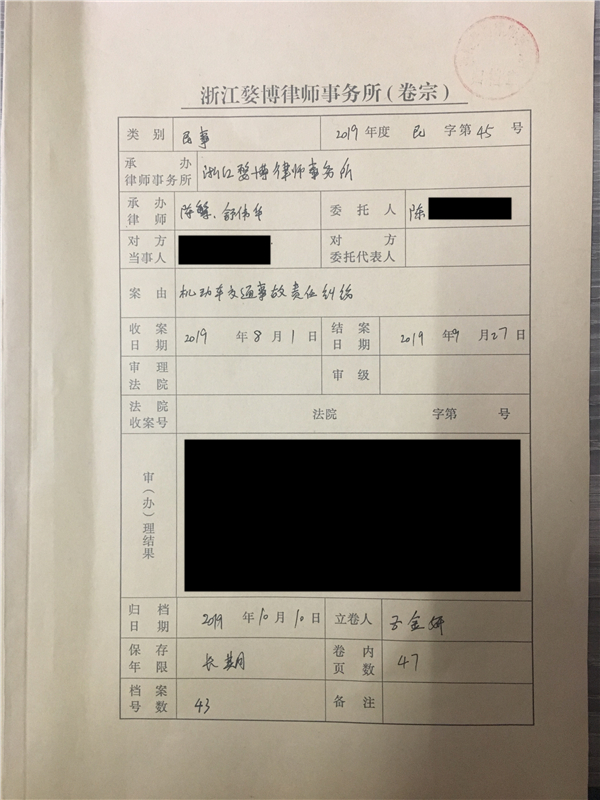 浙江婺博律师事务所(卷宗)
类别 民事 2019年度 民 字第 45 号
承办律师事务所 浙江婺博律师事务所
承办律师 陈馨、舒伟华 委托人 陈
对方当事人 对方委托代表人
案由 机动车交通事故责任纠纷
收案日期 2019 年 8 月 1 日 结案日期 2019 年 9 月 27 日
审理法院 审级
法院收案号 法院 字第 号
审(办)理结果
归档日期 2019 年 10 月 10 日 立卷人 金妍
保存年限 长期 卷内页数 47
档案号数 43 备注